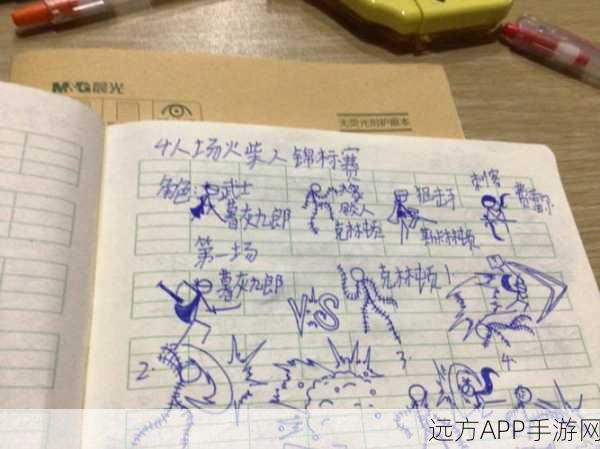 M&G晨光
无荧光附护眼本
4人场火柴人锦标赛
角色:武士
暮灰九郎
克林顿
狙击手
刺客
第一场
暮灰九郎
VS
克林顿
1
2.
3.
4.
远方APP手游网